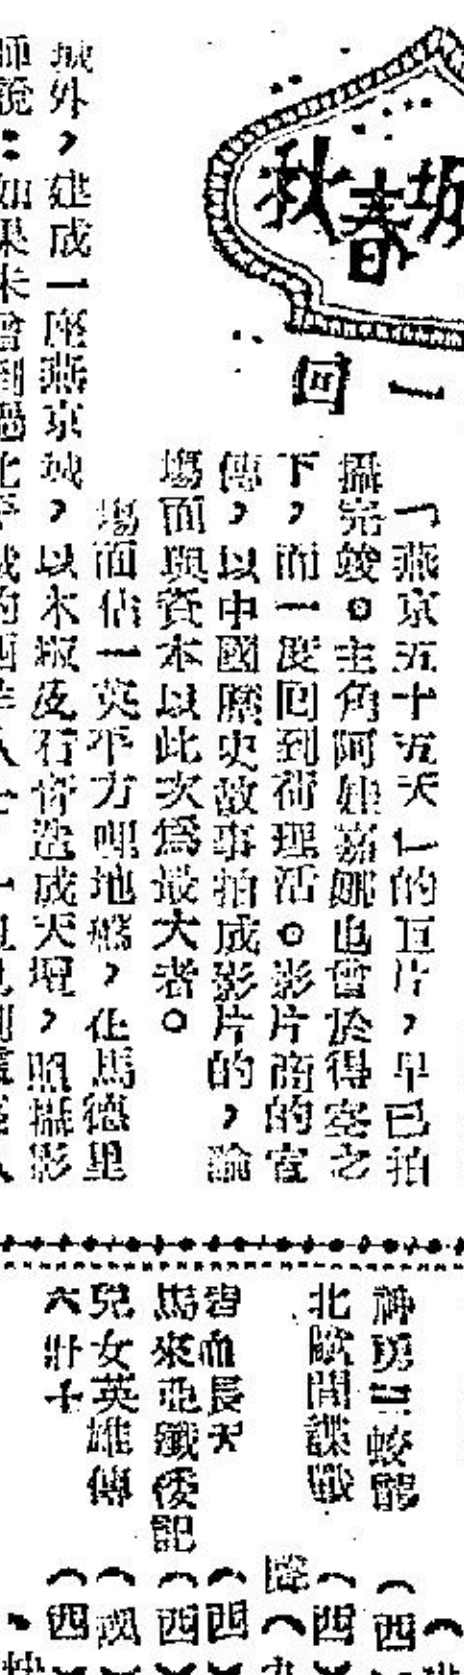 城春秋
一回
「燕京五十五天」的巨片，早已拍
攝完竣。主角阿娃嘉娜也曾於得空之
下，而一度回到荷理活。影片商的宣
傳，以中國歷史故事拍成影片的，論
場面與資本以此次為最大者。
場面佔一英平方哩地盤，在馬德里
城外，建成一座燕京城，以木板及石膏造成天壇，照攝影
師說：如果未曾到過北平城的西洋人士
神勇三蛟龍
北歐間諜戰
碧血長天
馬來亞殲倭記
兒女英雄傳
六壯士